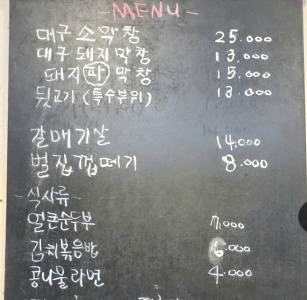 -MENU-
대구 소막창 25.000
대구 돼지막창 13.000
돼지 파 막창 15.000
뒷고기 (특수부위) 13.000
갈매기살 14.000
벌집껍떼기 8.000
-식사류-
얼큰순두부 7.000
김치볶음밥 6.000
콩나물라면 4.000